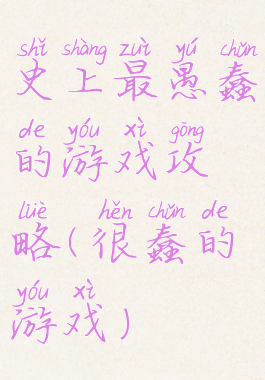 shǐ shàng zuì yú chǔn
史上最愚蠢
de yóu xì gōng
的游戏攻
lüè hěn chǔn de
略(很蠢的
yóu xì
游戏)